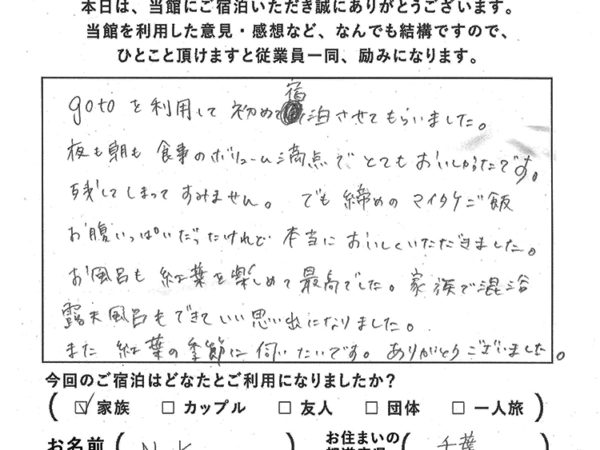 本日は、当館にご宿泊いただき誠にありがとうございます。
当館を利用した意見・感想など、なんでも結構ですので、
ひとこと頂けますと従業員一同、励みになります。
gotoを利用して初めて宿泊させてもらいました。
夜も朝も食事のボリューム満点でとてもおいしかったです。
残してしまってすみません。でも締めのマイタケご飯
お腹いっぱいだったけれど本当においしくいただきました。
お風呂も紅葉を楽しめて最高でした。家族で混浴
露天風呂もできていい思い出になりました。
また紅葉の季節に伺いたいです。ありがとうございました。
今回のご宿泊はどなたとご利用になりましたか?
(☑家族 □カップル □友人 □団体 □一人旅)
お名前( N.K
お住まいの
(千葉